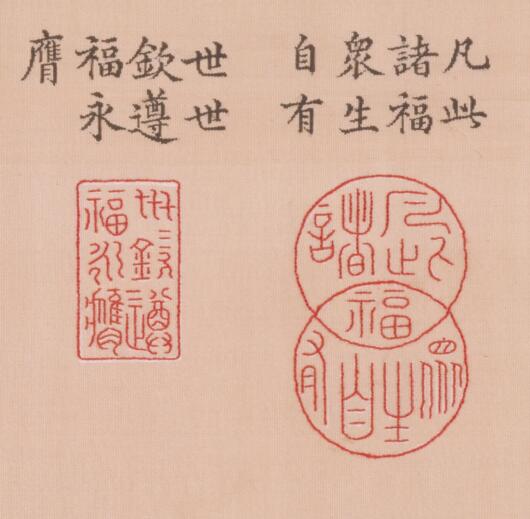 凡此
諸福
眾生
自有
世世
欽遵
福永
膺
凡此諸
福
眾生自有
世〻欽遵
福永膺